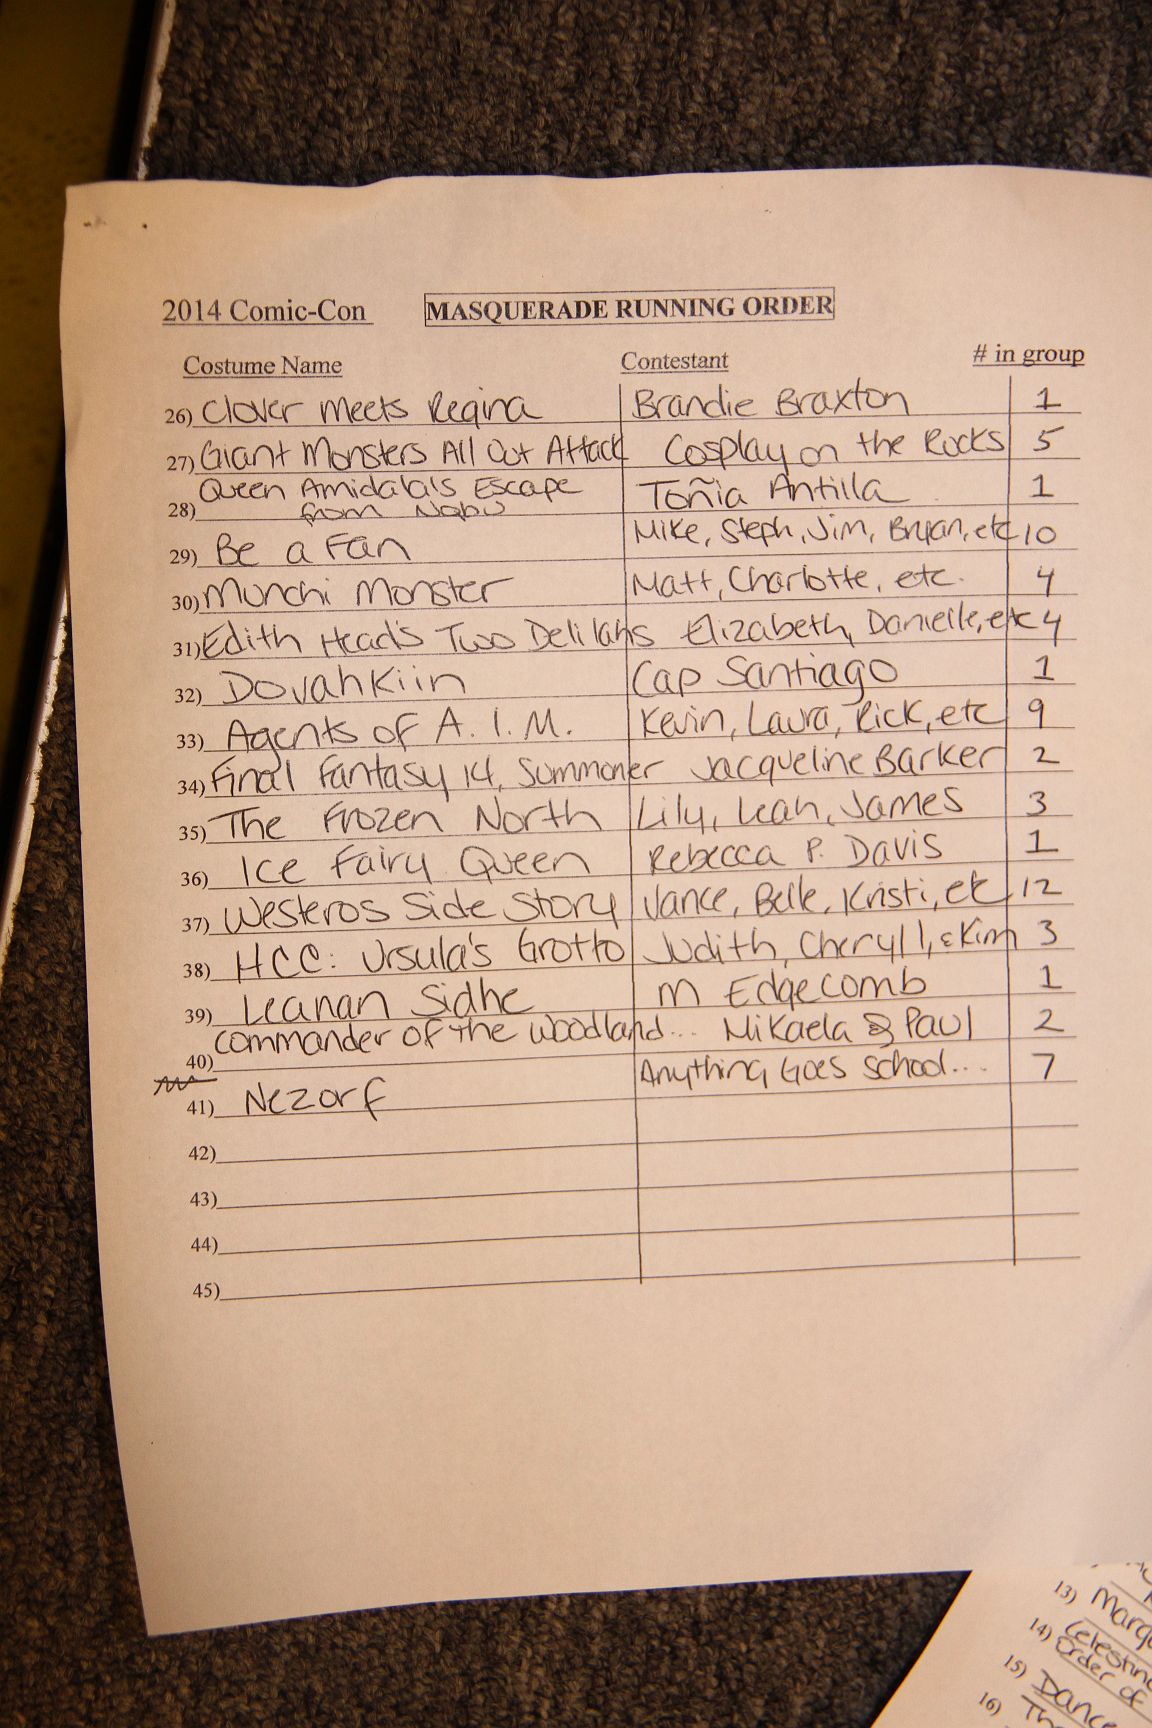 2014 Comic-Con MASQUERADE RUNNING ORDER
Costume Name Contestant # in group
26) Clover Meets Regina Brandie Braxton 1
27) Giant Monsters All Out Attack Cosplay on the Rocks 5
Queen Amidala's Escape Toñia Antilla 1
28) from Nabu
29) Be a Fan Mike, Steph, Jim, Bryan, etc 10
30) Munchi Monster Matt, Charlotte, etc. 4
31) Edith Head's Two Delilahs Elizabeth, Danielle, etc 4
32) Dovahkiin Cap Santiago 1
33) Agents of A.I.M. Kevin, Laura, Rick, etc 9
34) Final Fantasy 14, Summoner Jacqueline Barker 2
35) The Frozen North Lily, Leah, James 3
36) Ice Fairy Queen Rebecca P. Davis 1
37) Westeros Side Story Vance, Belle, Kristi, etc 12
38) HCC: Ursula's Grotto Judith, Cheryl l, & Kim 3
39) Leanan Sidhe M Edgecomb 1
40) Commander of the Woodland... Mikaela & Paul 2
41) Nezorf Anything Goes School... 7
42)
43)
44)
45)
13) Marqu
14) Celestin
Order of
15) Dance
16) Th